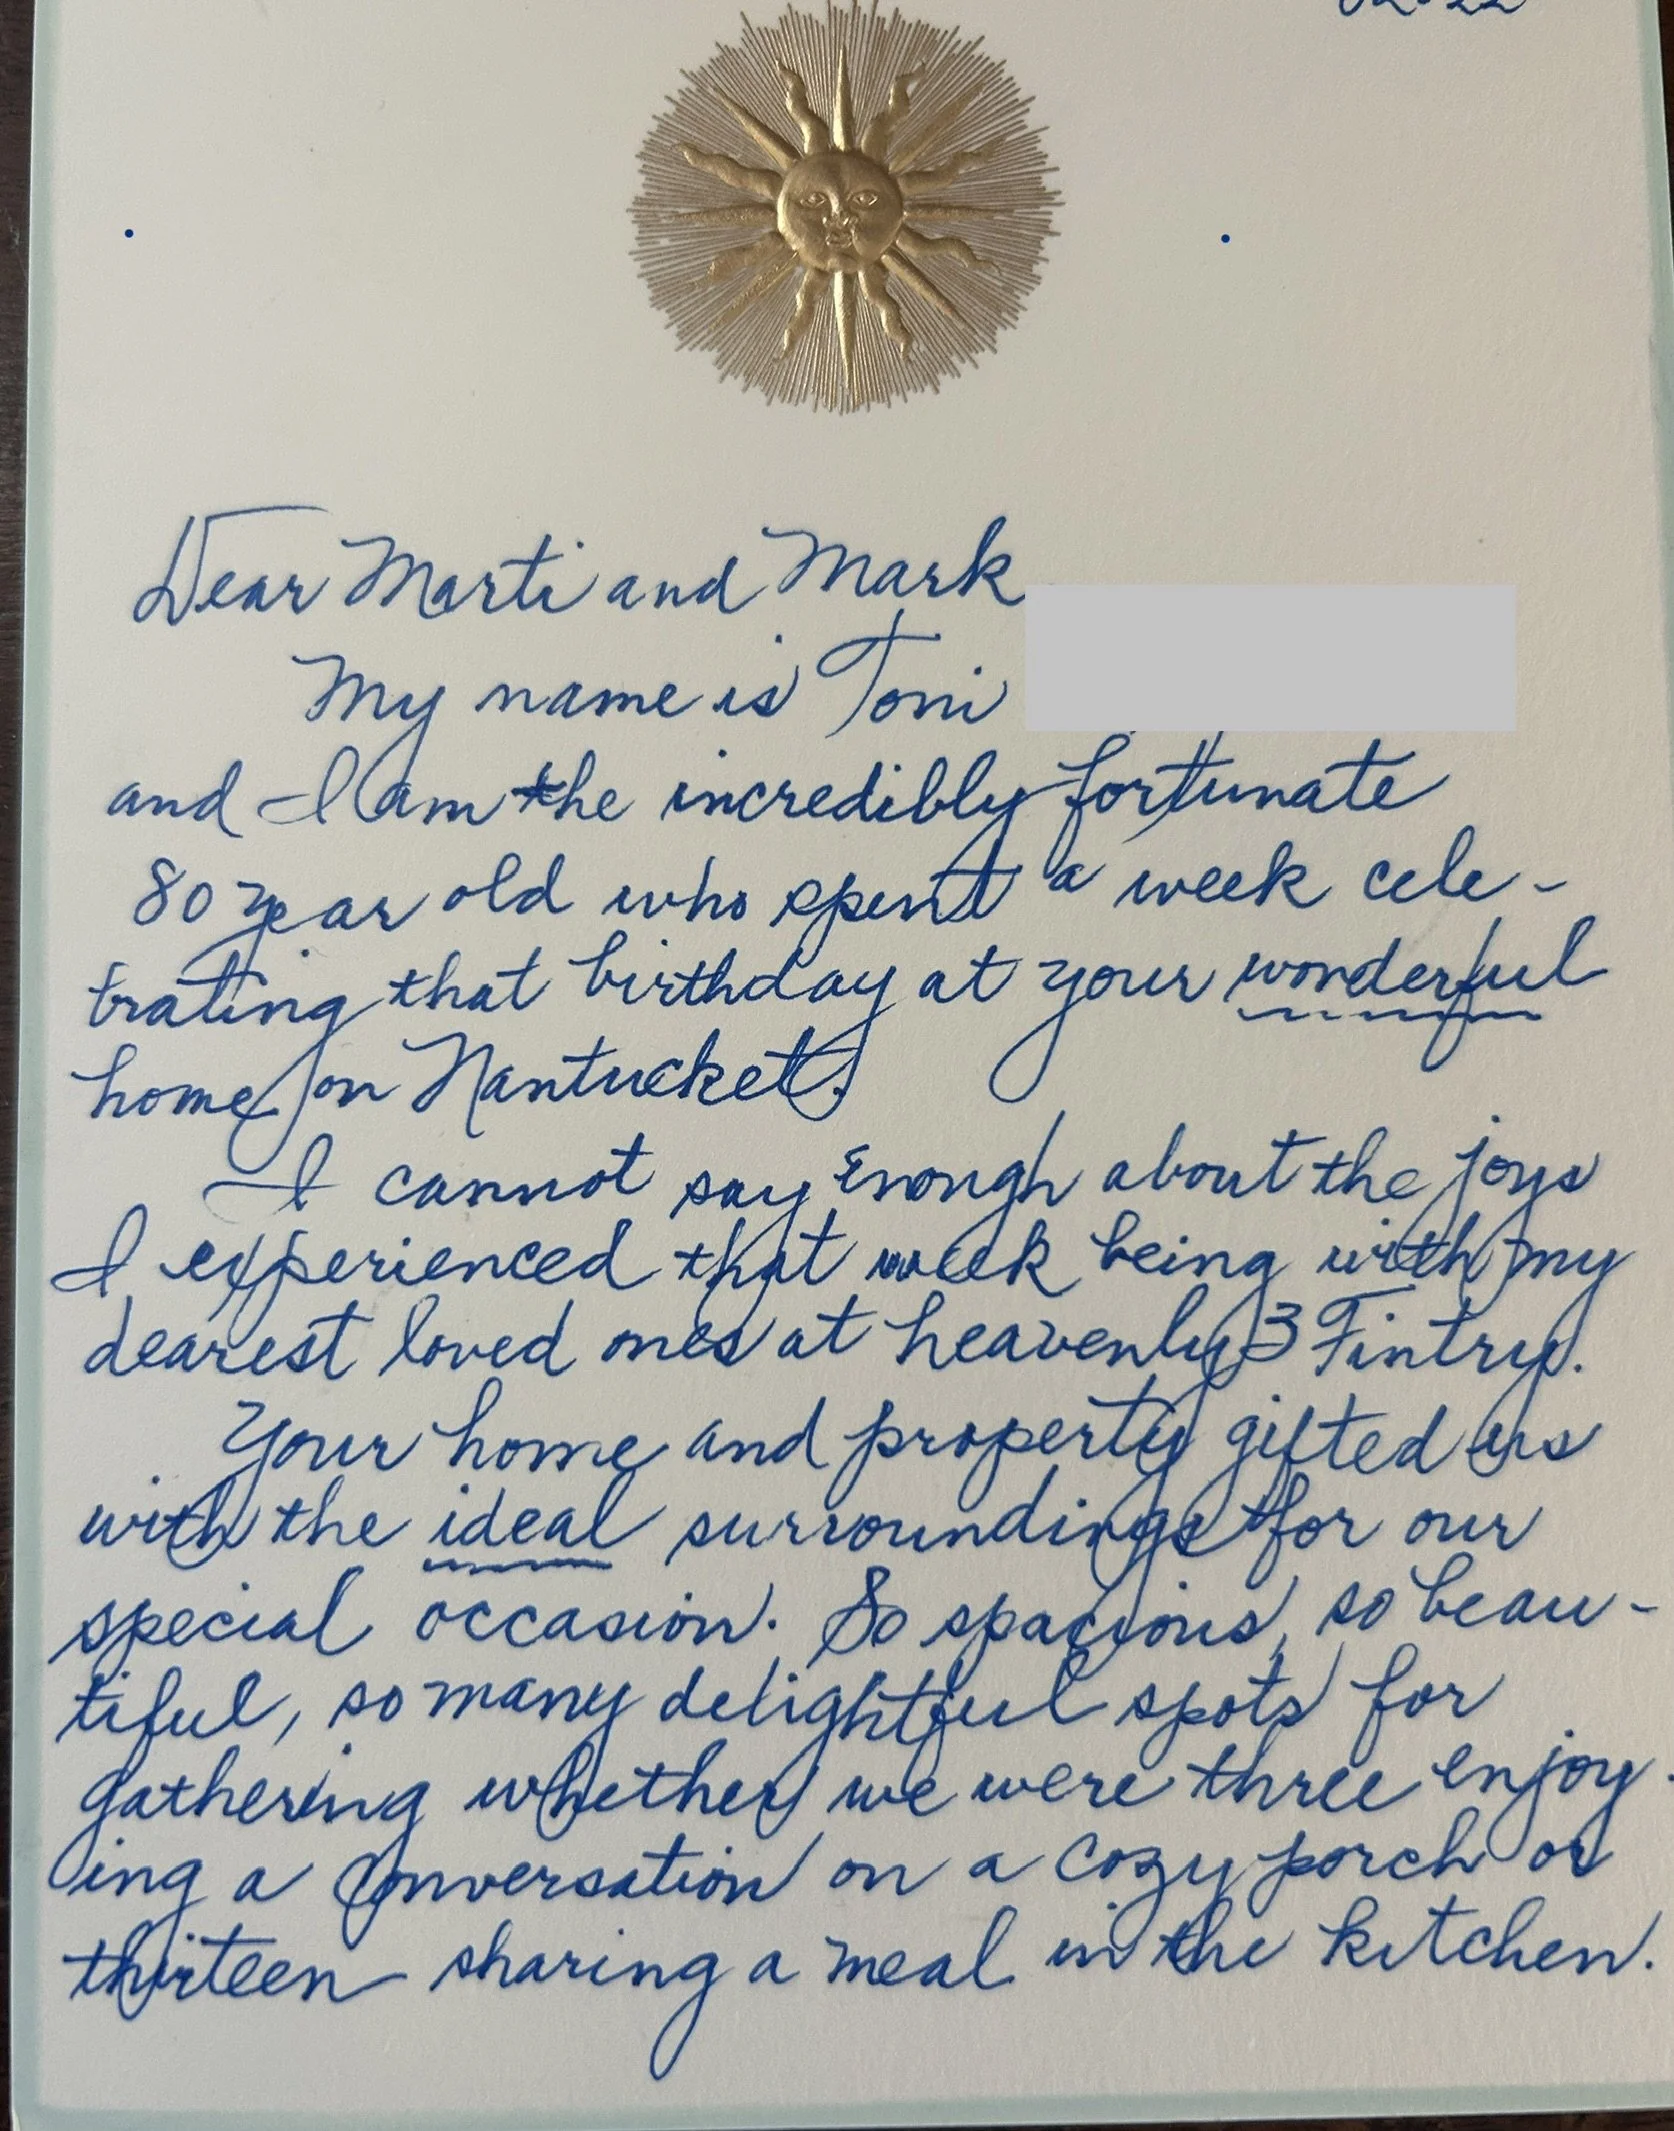 Dear Marti and Mark
My name is Toni
and I am the incredibly fortunate
80 year old who spent a week cele-
brating that birthday at your wonderful
home on Nantucket.
I cannot say enough about the joys
I experienced that week being with my
dearest loved ones at heavenly 3 Fintry.
Your home and property gifted us
with the ideal surroundings for our
special occasion. So spacious, so beau-
tiful, so many delightful spots for
gathering whether we were three enjoy-
ing a conversation on a cozy porch or
thirteen sharing a meal in the kitchen.